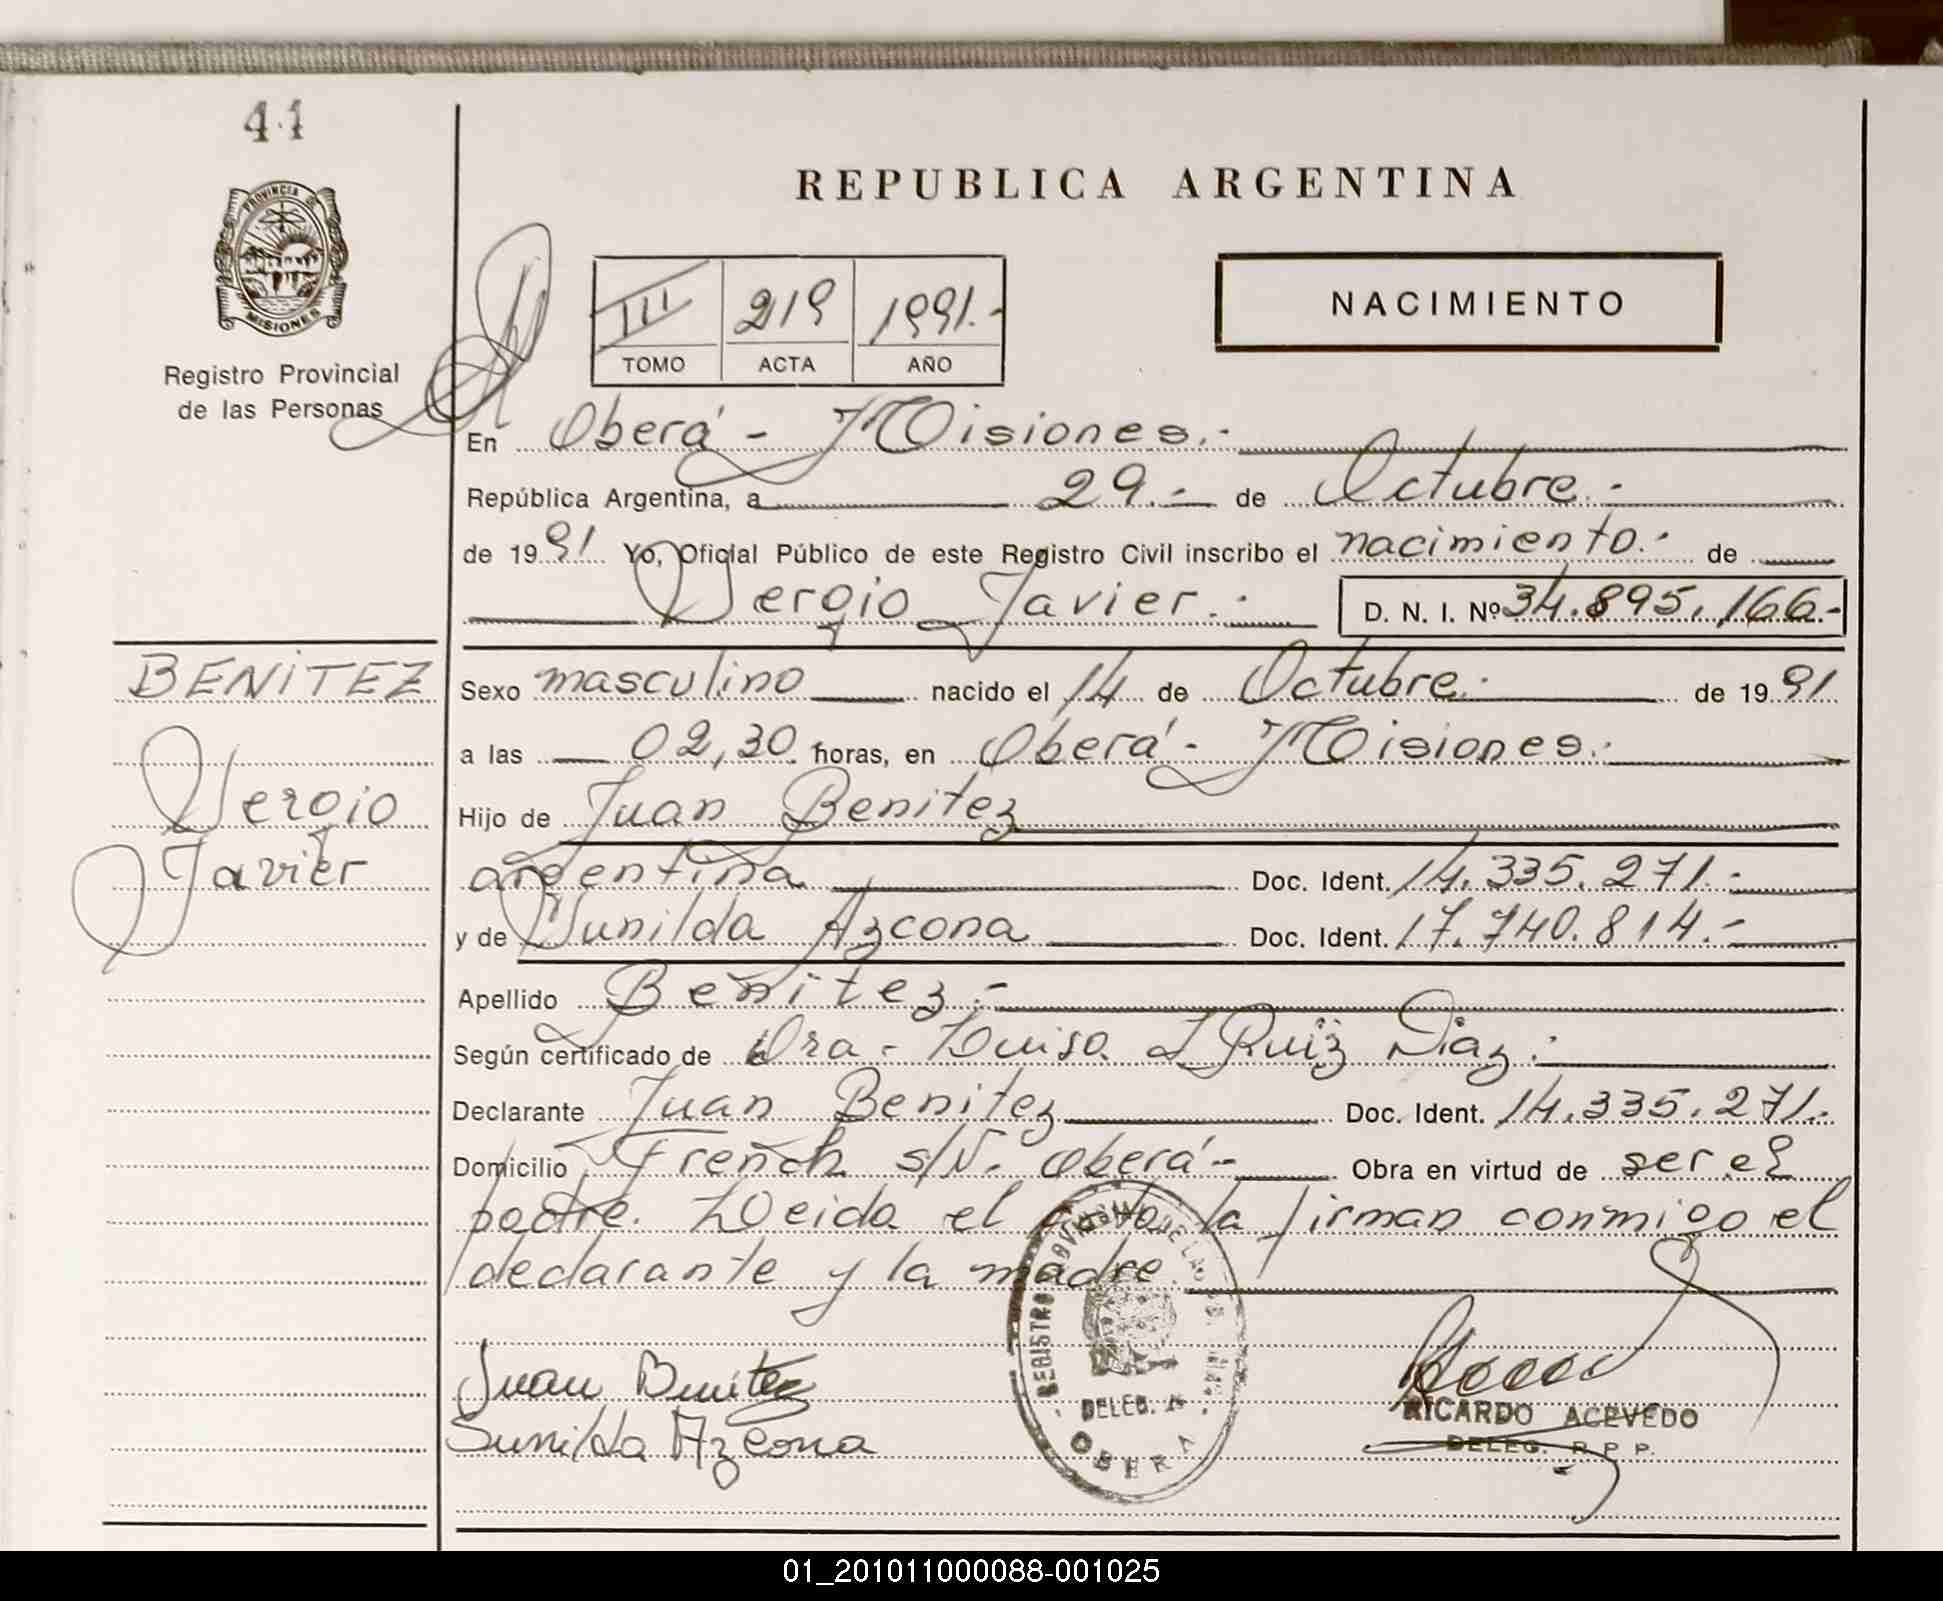 41
PROVINCIA DE
MISIONES
Registro Provincial
de las Personas
REPUBLICA ARGENTINA
III 219 1991.-
TOMO ACTA AÑO
NACIMIENTO
En Oberá - Misiones.-
República Argentina, a 29.- de Octubre.-
de 1991 Yo, Oficial Público de este Registro Civil inscribo el nacimiento.- de
Sergio Javier.- D. N. I. Nº 34.895.166.-
BENITEZ
Sergio
Javier
Sexo masculino nacido el 14 de Octubre.- de 1991
a las 02,30 horas, en Oberá - Misiones.-
Hijo de Juan Benitez
argentina Doc. Ident. 14.335.271.-
y de Sunilda Azcona Doc. Ident. 17.740.814.-
Apellido Benitez.-
Según certificado de Dra- Luisa I Ruiz Diaz.-
Declarante Juan Benitez Doc. Ident. 14.335.271.-
Domicilio French s/N. Oberá - Obra en virtud de ser el
padre. Leida el acta la firman conmigo el
declarante y la madre.
Juan Benitez
Sunilda Azcona
REGISTRO PROVINCIAL DE LAS
DELEG.
OBERA
RICARDO ACEVEDO
DELEG. R. P. P.
01_201011000088-001025